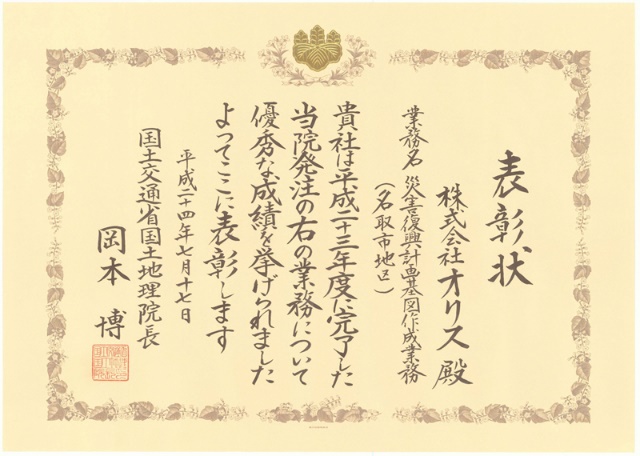 表彰状
株式会社オリス殿
業務名 災害復興計画基図作成業務
（名取市地区）
貴社は平成二十三年度に完了した
当院発注の右の業務について
優秀な成績を挙げられました
よってここに表彰します
平成二十四年七月十七日
国土交通省国土地理院長
岡本 博